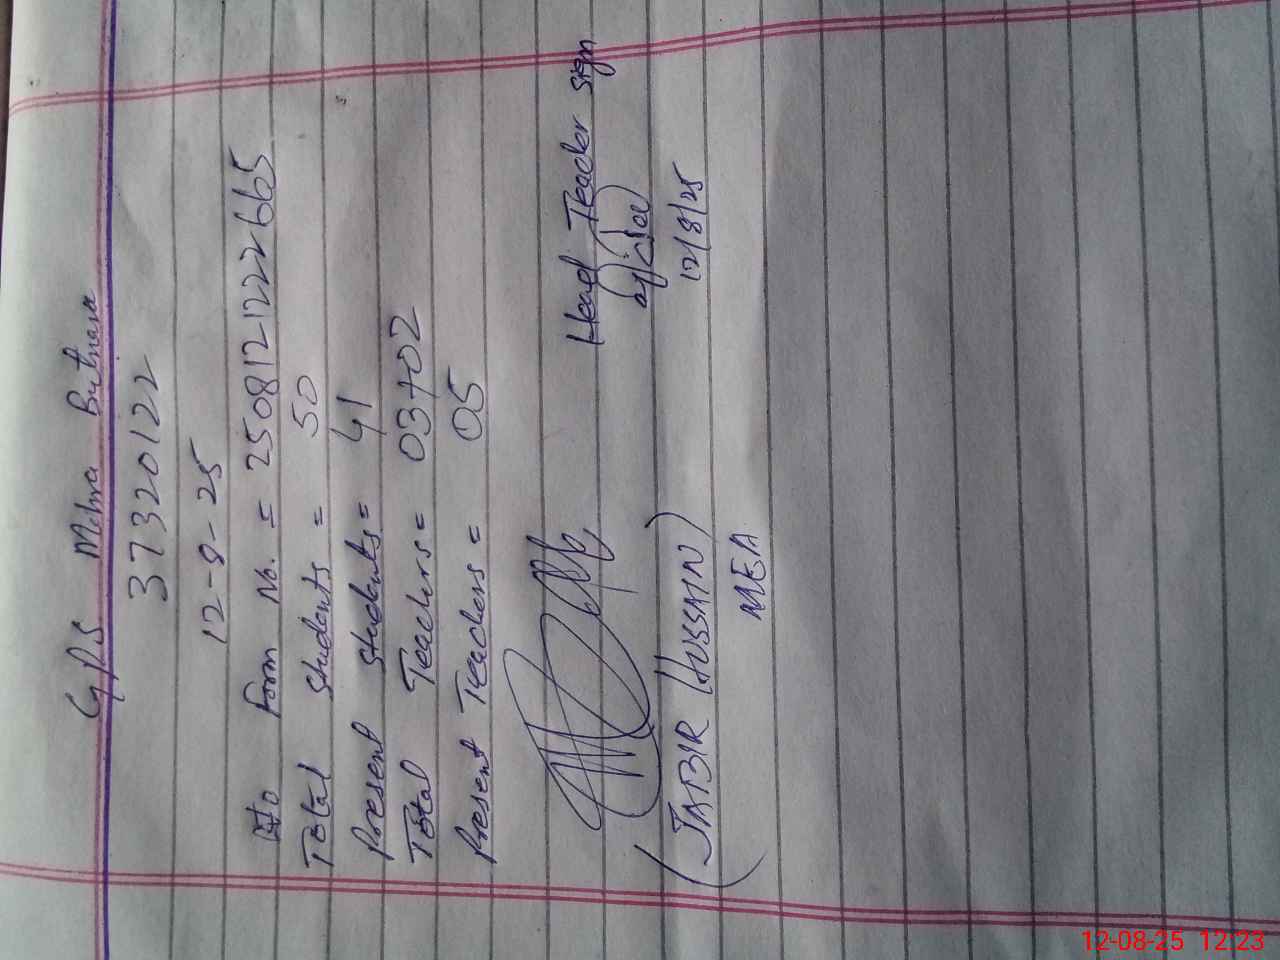 GPS Mohra Butnara
37320122
12-8-25
Form No. = 2508121222665
Total Students = 50
Present Students = 41
Total Teachers = 03+02
Present Teachers = 05
Head Teacher Sign
12/8/25
(JABIR HUSSAIN)
MEA
12-08-25 12:23